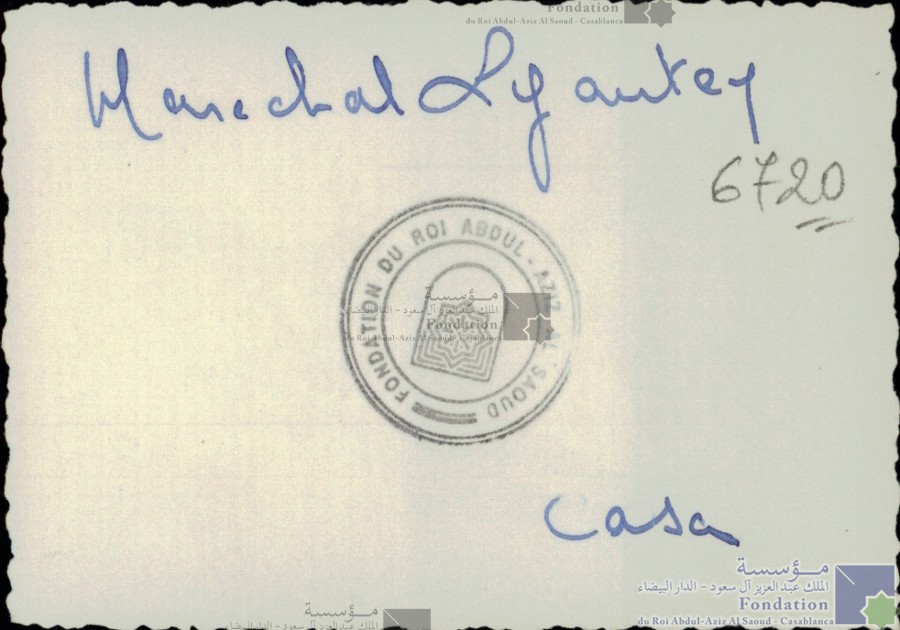 Fondation
du Roi Abdul-Aziz Al Saoud - Casablanca
Marechal Lyautey
6720
FONDATION DU ROI ABDUL-AZIZ AL SAOUD
مؤسسة
الملك عبد العزيز آل سعود - الدار البيضاء
Fondation
du Roi Abdul-Aziz Al Saoud - Casablanca
Casa
مؤسسة
الملك عبد العزيز آل سعود - الدار البيضاء
Fondation
du Roi Abdul-Aziz Al Saoud - Casablanca
مؤسسة
الملك عبد العزيز آل سعود - الدار البيضاء